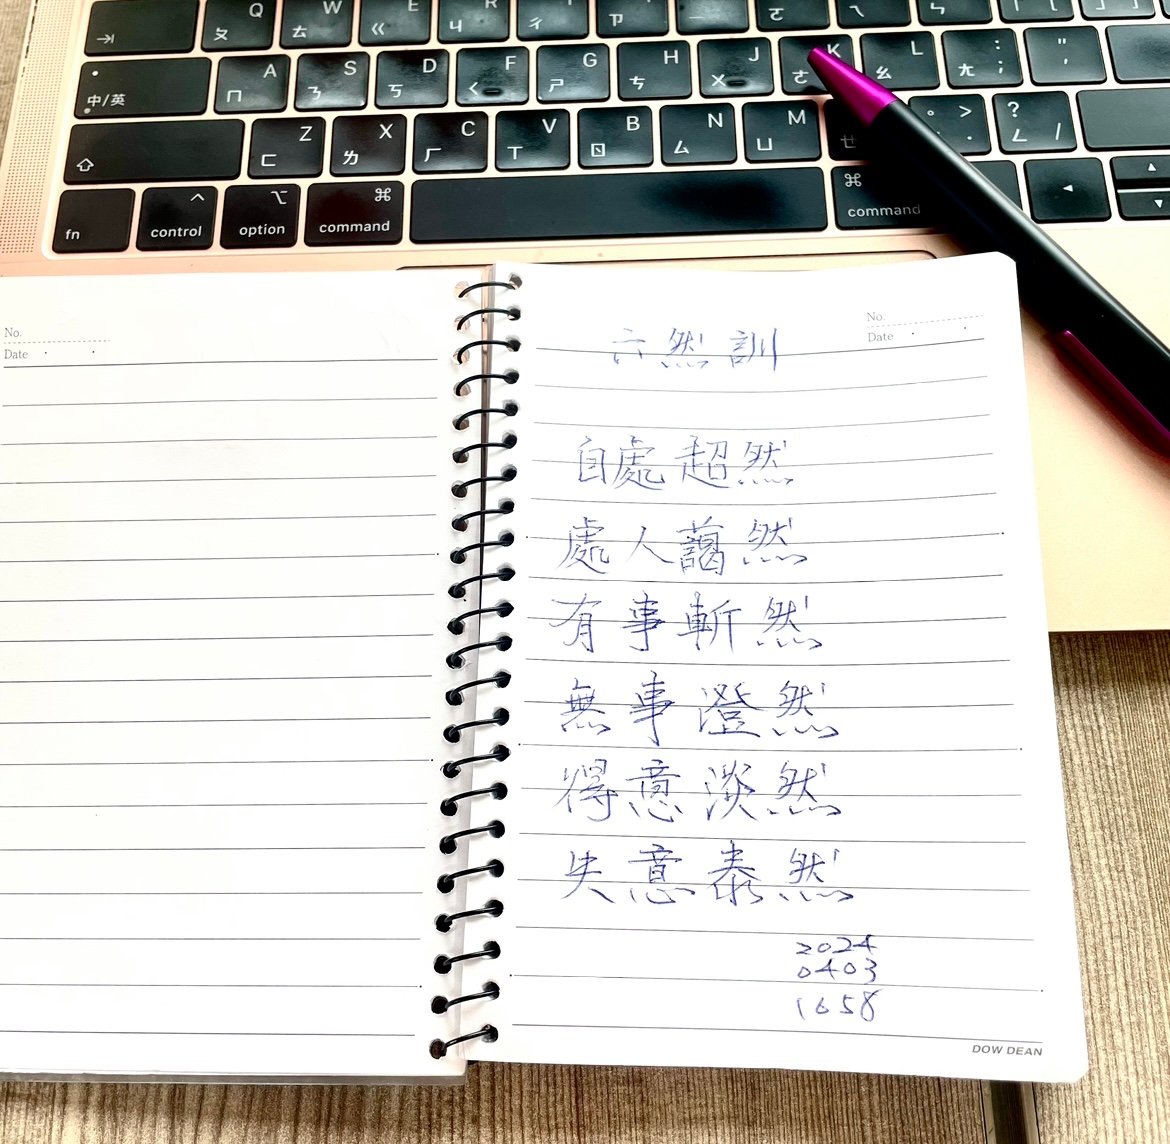 Q ㄆ W ㄊ E ㄍ R ㄐ T ㄔ ㄗ ㄛ ㄟ ㄣ
中/英 A ㄇ S ㄋ D ㄎ F ㄑ G ㄕ H ㄘ J ㄨ K ㄜ L ㄠ : ; ㄤ " '
Z ㄈ X ㄌ C ㄏ V ㄒ B ㄖ N ㄙ M ㄩ ㄝ > . ? / ㄥ
fn control option ⌘ command ⌘ command
No.
Date
No.
Date
六然訓
自處超然
處人藹然
有事斬然
無事澄然
得意淡然
失意泰然
2024
0403
1658
DOW DEAN